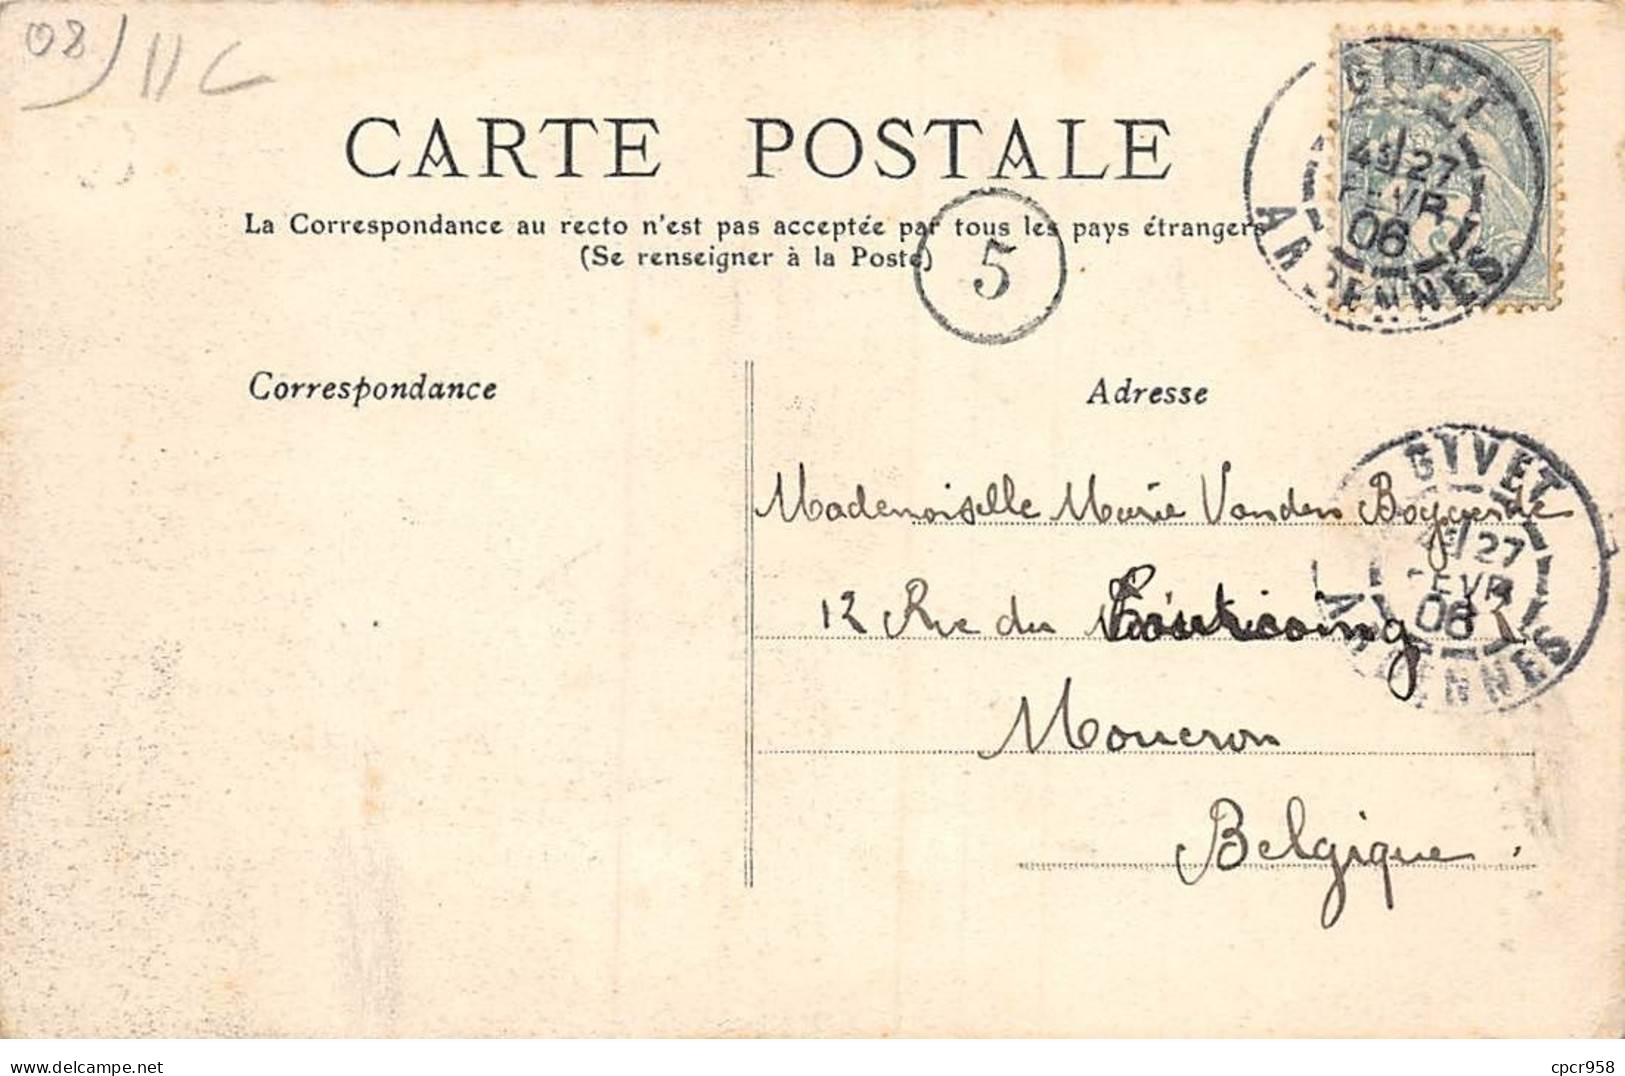 08/11C
CARTE POSTALE
La Correspondance au recto n'est pas acceptée par tous les pays étrangers
(Se renseigner à la Poste)
5
GIVET
4 27
FEVR
06
ARDENNES
Correspondance
Adresse
Mademoiselle Marie Vanden
12 Rue du
Moucron
Belgique.
GIVET
27
FEVR
06
ARDENNES
www.delcampe.net
cpcr958